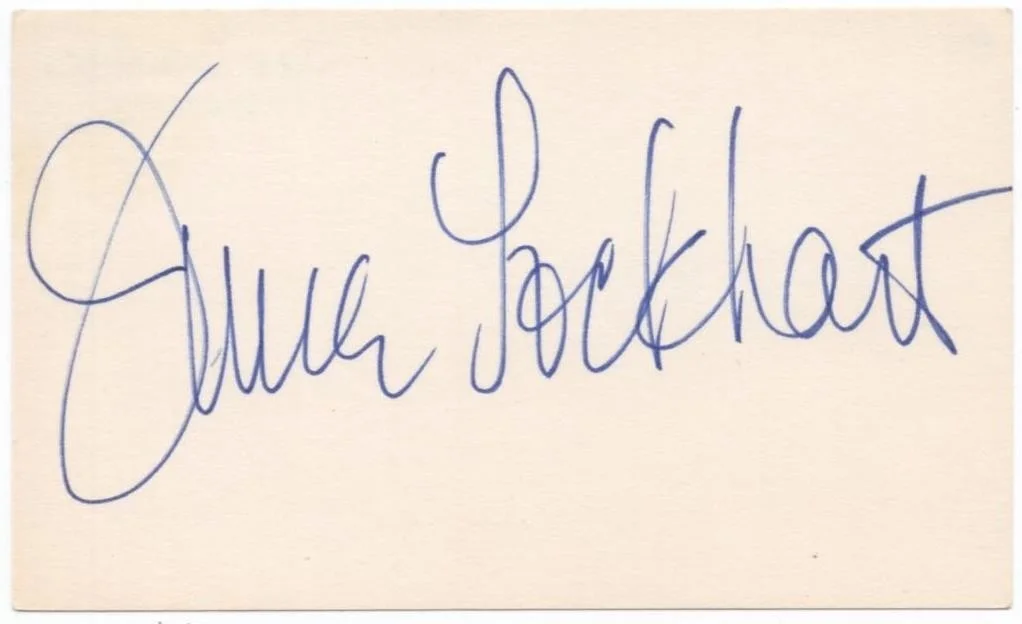 June Lockhart